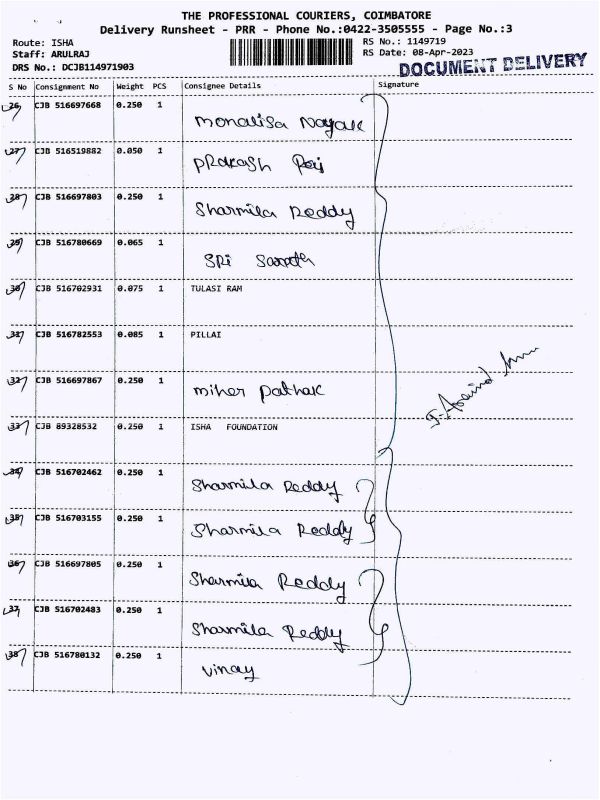 THE PROFESSIONAL COURIERS, COIMBATORE
Delivery Runsheet - PRR - Phone No.:0422-3505555 - Page No.:3
Route: ISHA
Staff: ARULRAJ
DRS No.: DCJB114971903
RS No.: 1149719
RS Date: 08-Apr-2023
DOCUMENT DELIVERY
S No Consignment No Weight PCS Consignee Details Signature
26 CJB 516697668 0.250 1 Monalisa Nayak
27 CJB 516519882 0.050 1 Prakash
28 CJB 516697803 0.250 1 Sharmila Reddy
29 CJB 516780669 0.065 1 Sri
30 CJB 516702931 0.075 1 TULASI RAM
31 CJB 516782553 0.085 1 PILLAI
32 CJB 516697867 0.250 1 miher pathak
33 CJB 89328532 0.250 1 ISHA FOUNDATION
34 CJB 516702462 0.250 1 Sharmila Reddy
35 CJB 516703155 0.250 1 Sharmila Reddy
36 CJB 516697805 0.250 1 Sharmila Reddy
37 CJB 516702483 0.250 1 Sharmila Reddy
38 CJB 516780132 0.250 1 vinay